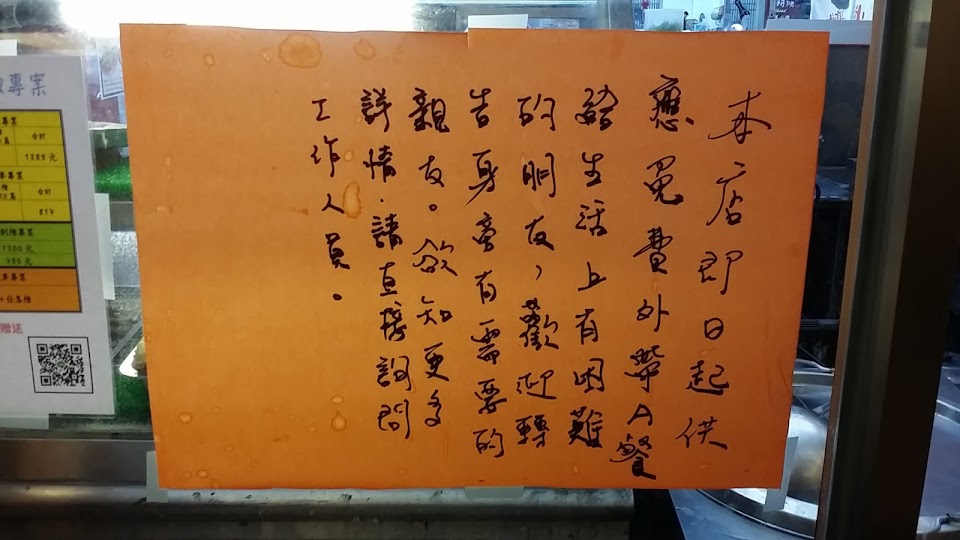 本店即日起供
應免費外帶A餐
給生活上有困難
的朋友，歡迎轉
告身旁有需要的
親友。欲知更多
詳情．請直接詢問
工作人員。
專案
合計
1289元
817
1200元
贈送